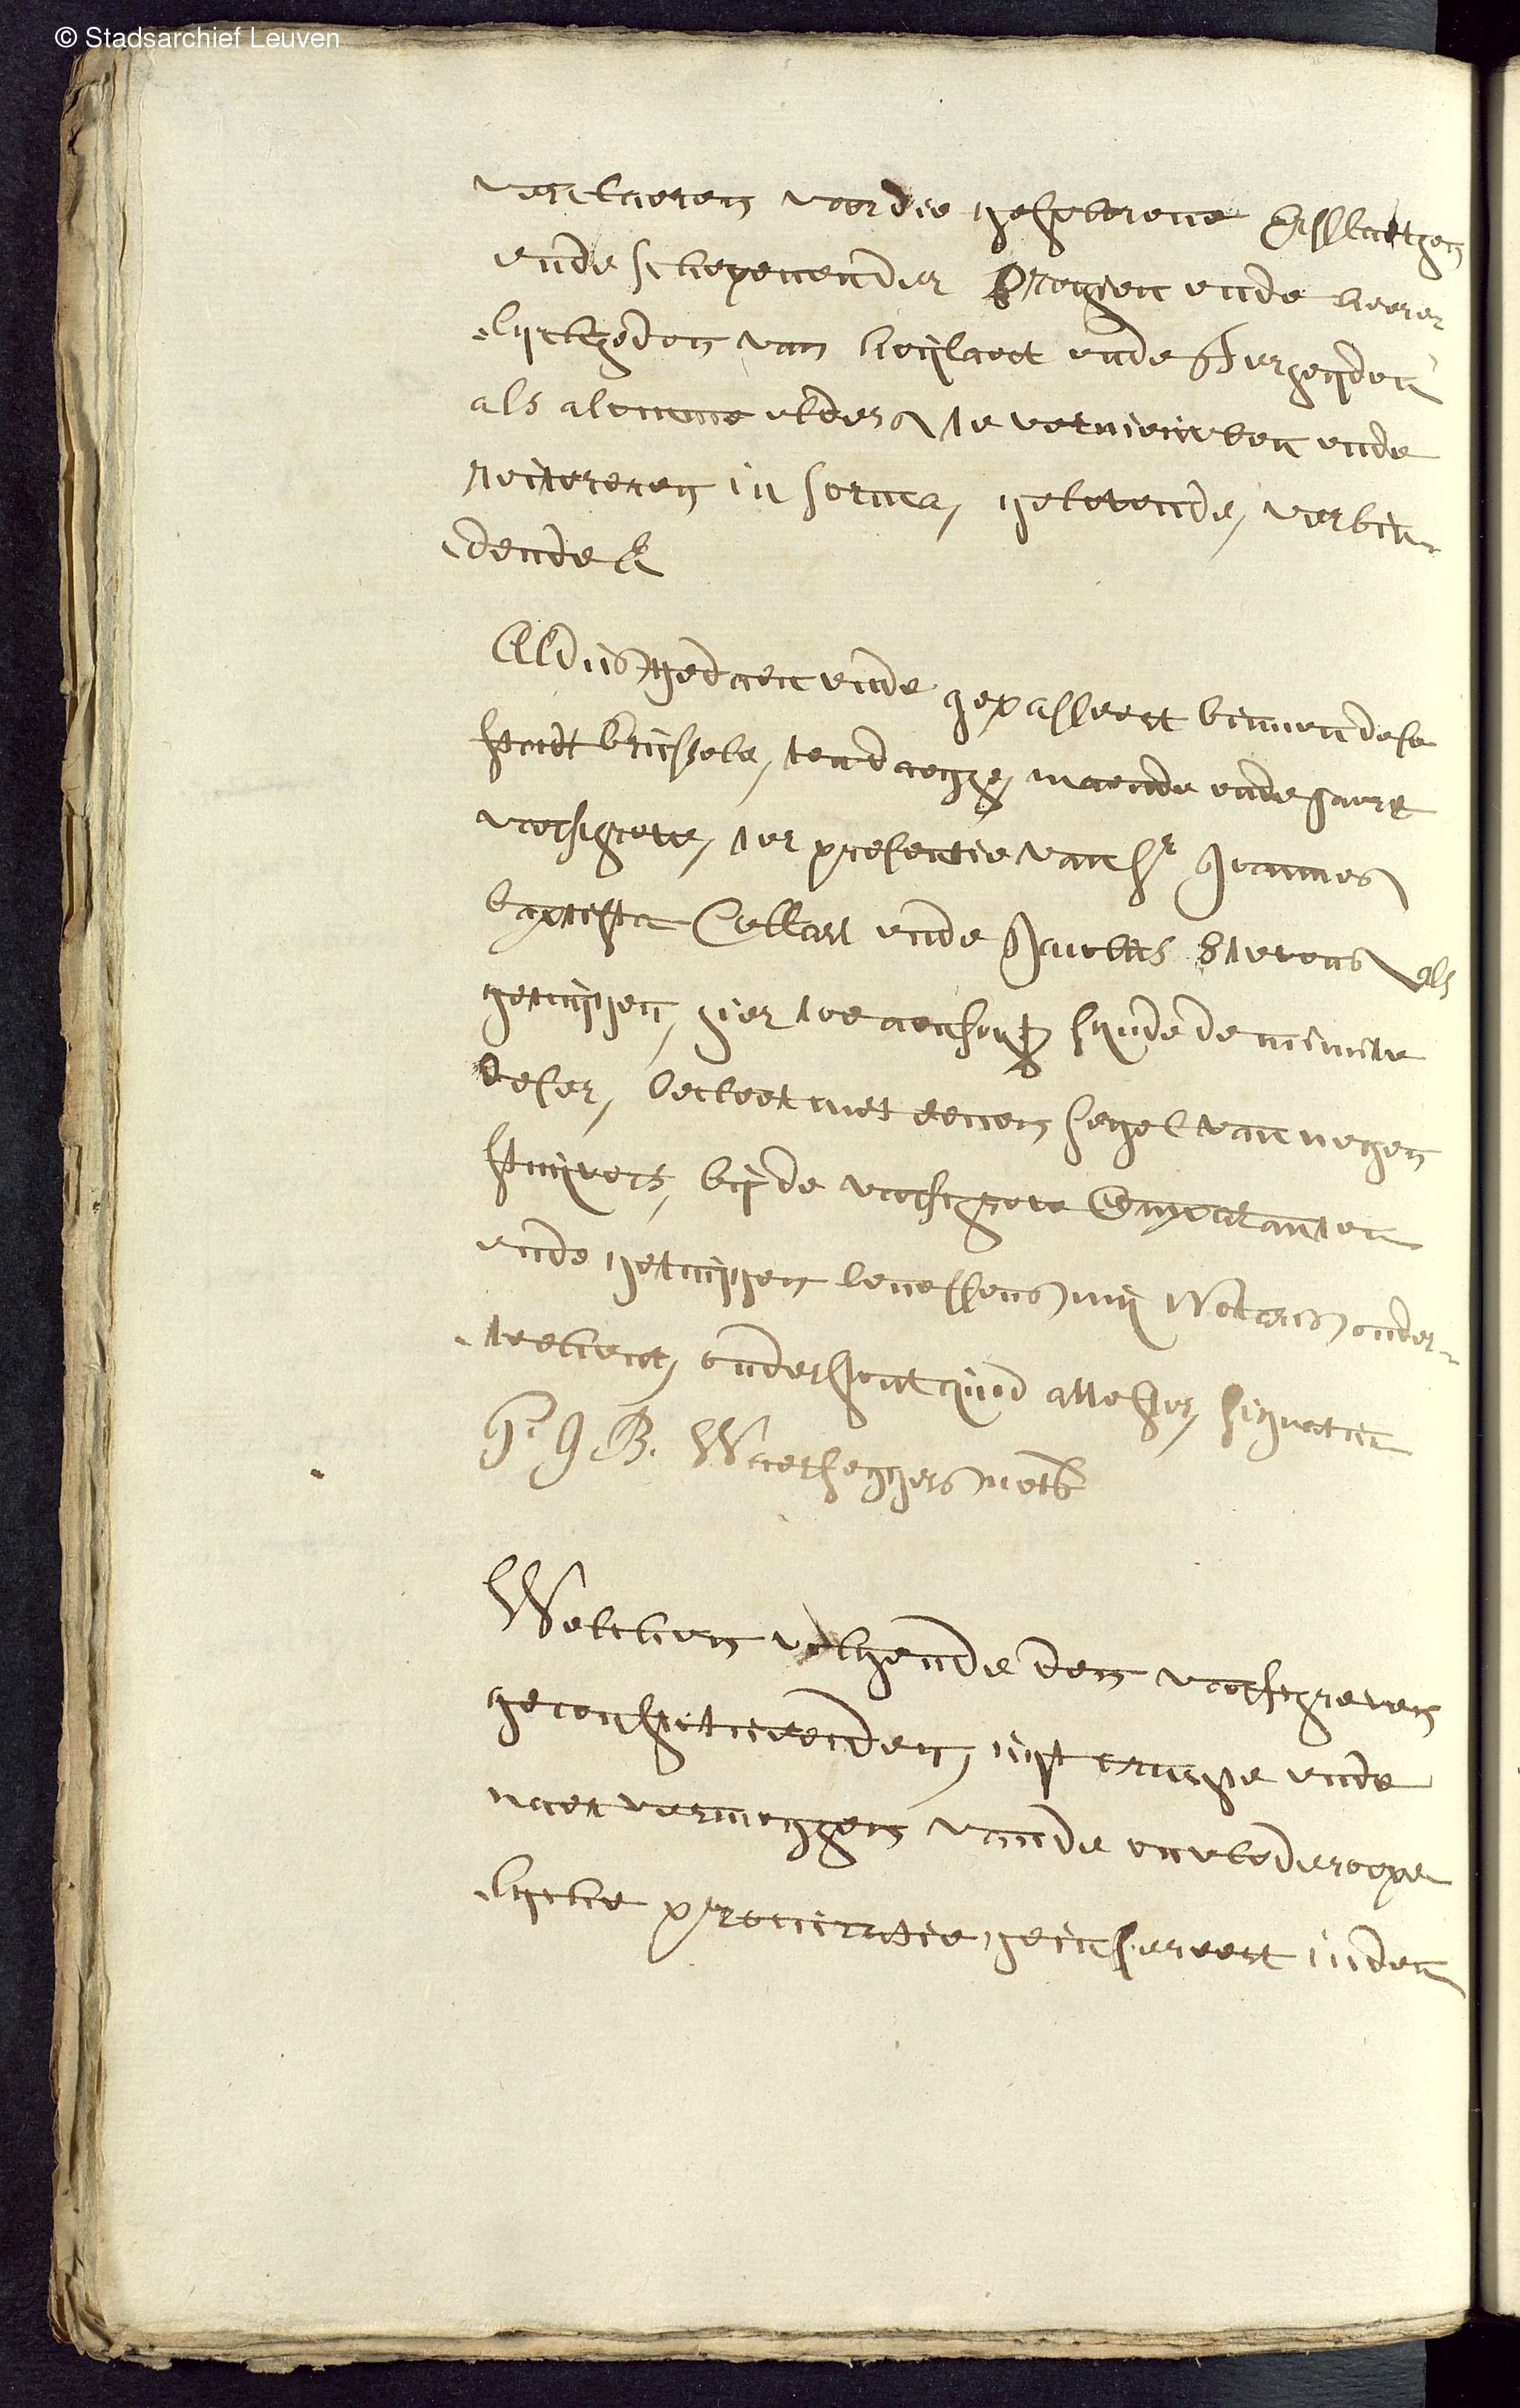 © Stadsarchief Leuven
verclaeren voor die geswoerene Erfflaethen
ende schepenen der Prochien ende heer
lyckheden van huylaert ende
als alomme elders te vernieuwen ende
reitereren in forma, gelovende, verbin
dende &
Aldus gedaen ende gepasseert binnen dese
stadt brussele, ten daeghe, maende ende jaere
voorschreve, ter presentie van Sr Joannes
baptista Collart ende Jacobus Stevens als
getuijgen, hier toe aensocht sijnde de minute
deser, becleet met eenen segel van negen
stuijvers, bij de voorschreve Comparanten
ende getuijgen beneffens mij Notaris onder
teekent, onderstont quod attestor, signatum
J. B. Waerseggers nots
Welcken volgende den voorschreven
geconstitueerden, uijt crachte ende
naer vermoghen vande onwederoepe
lijcke procuratie geinsereert inden